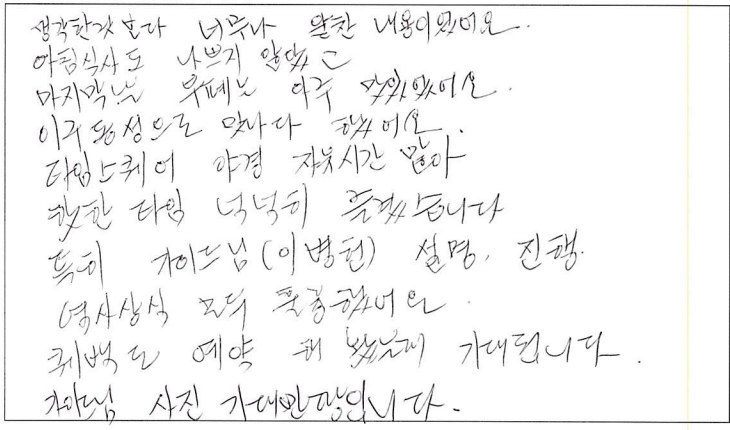 생각한것 보다 너무나 알찬 내용이었어요.
아침식사도 나쁘지 않았고
마지막날 부페는 아주 맛있었어요.
이구동성으로 맛나다 했어요.
타임스퀘어 야경 자유시간 많아
핫한 타임 넉넉히 즐겼습니다
특히 가이드님(이병헌) 설명, 진행.
역사상식 모두 훌륭했어요.
퀘백도 예약 해 놨는데 기대됩니다.
가이드님 사진 기대만땅입니다.